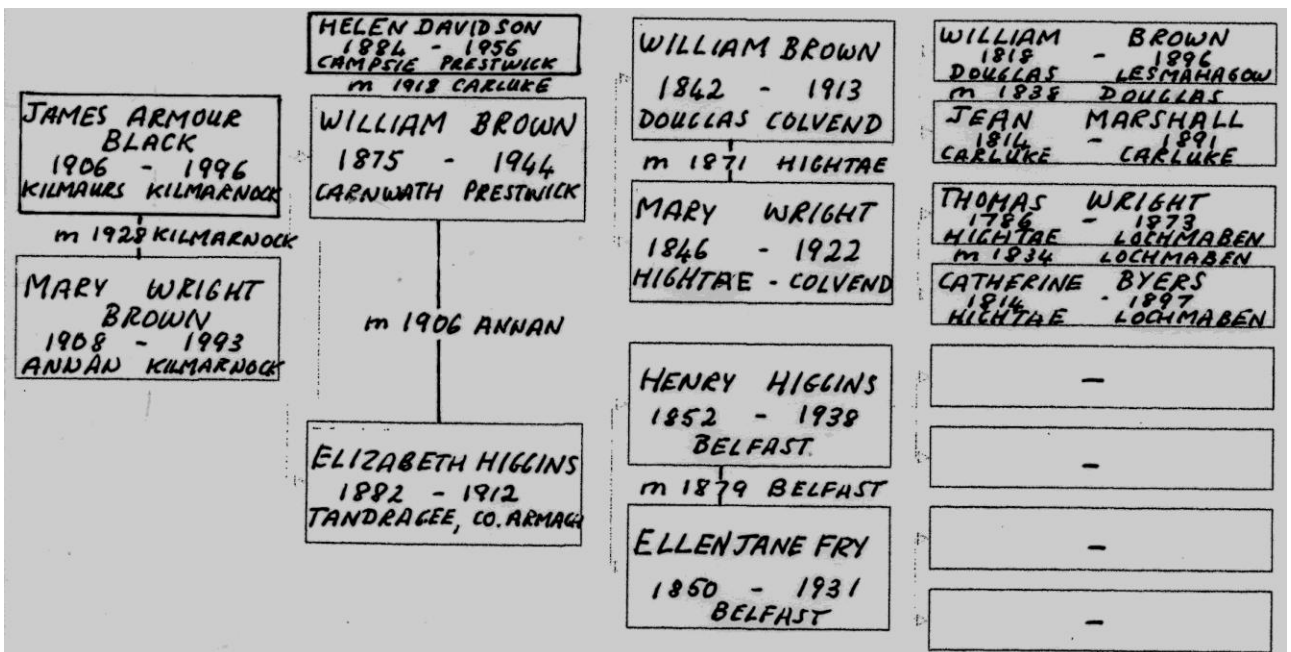 JAMES ARMOUR
BLACK
1906 - 1996
KILMAURS KILMARNOCK
m 1928 KILMARNOCK
MARY WRIGHT
BROWN
1908 - 1993
ANNAN KILMARNOCK
HELEN DAVIDSON
1884 - 1956
CAMPSIE PRESTWICK
m 1918 CARLUKE
WILLIAM BROWN
1875 - 1944
CARNWATH PRESTWICK
m 1906 ANNAN
ELIZABETH HIGGINS
1882 - 1912
TANDRAGEE, CO. ARMAGH
WILLIAM BROWN
1842 - 1913
DOUGLAS COLVEND
m 1871 HIGHTAE
MARY WRIGHT
1846 - 1922
HIGHTAE - COLVEND
HENRY HIGGINS
1852 - 1938
BELFAST.
m 1879 BELFAST
ELLEN JANE FRY
1850 - 1931
BELFAST
WILLIAM BROWN
1818 - 1896
DOUGLAS LESMAHAGOW
m 1838 DOUGLAS
JEAN MARSHALL
1814 - 1891
CARLUKE CARLUKE
THOMAS WRIGHT
1786 - 1873
HIGHTAE LOCHMABEN
m 1834 LOCHMABEN
CATHERINE BYERS
1814 - 1897
HIGHTAE LOCHMABEN
-
-
-
-